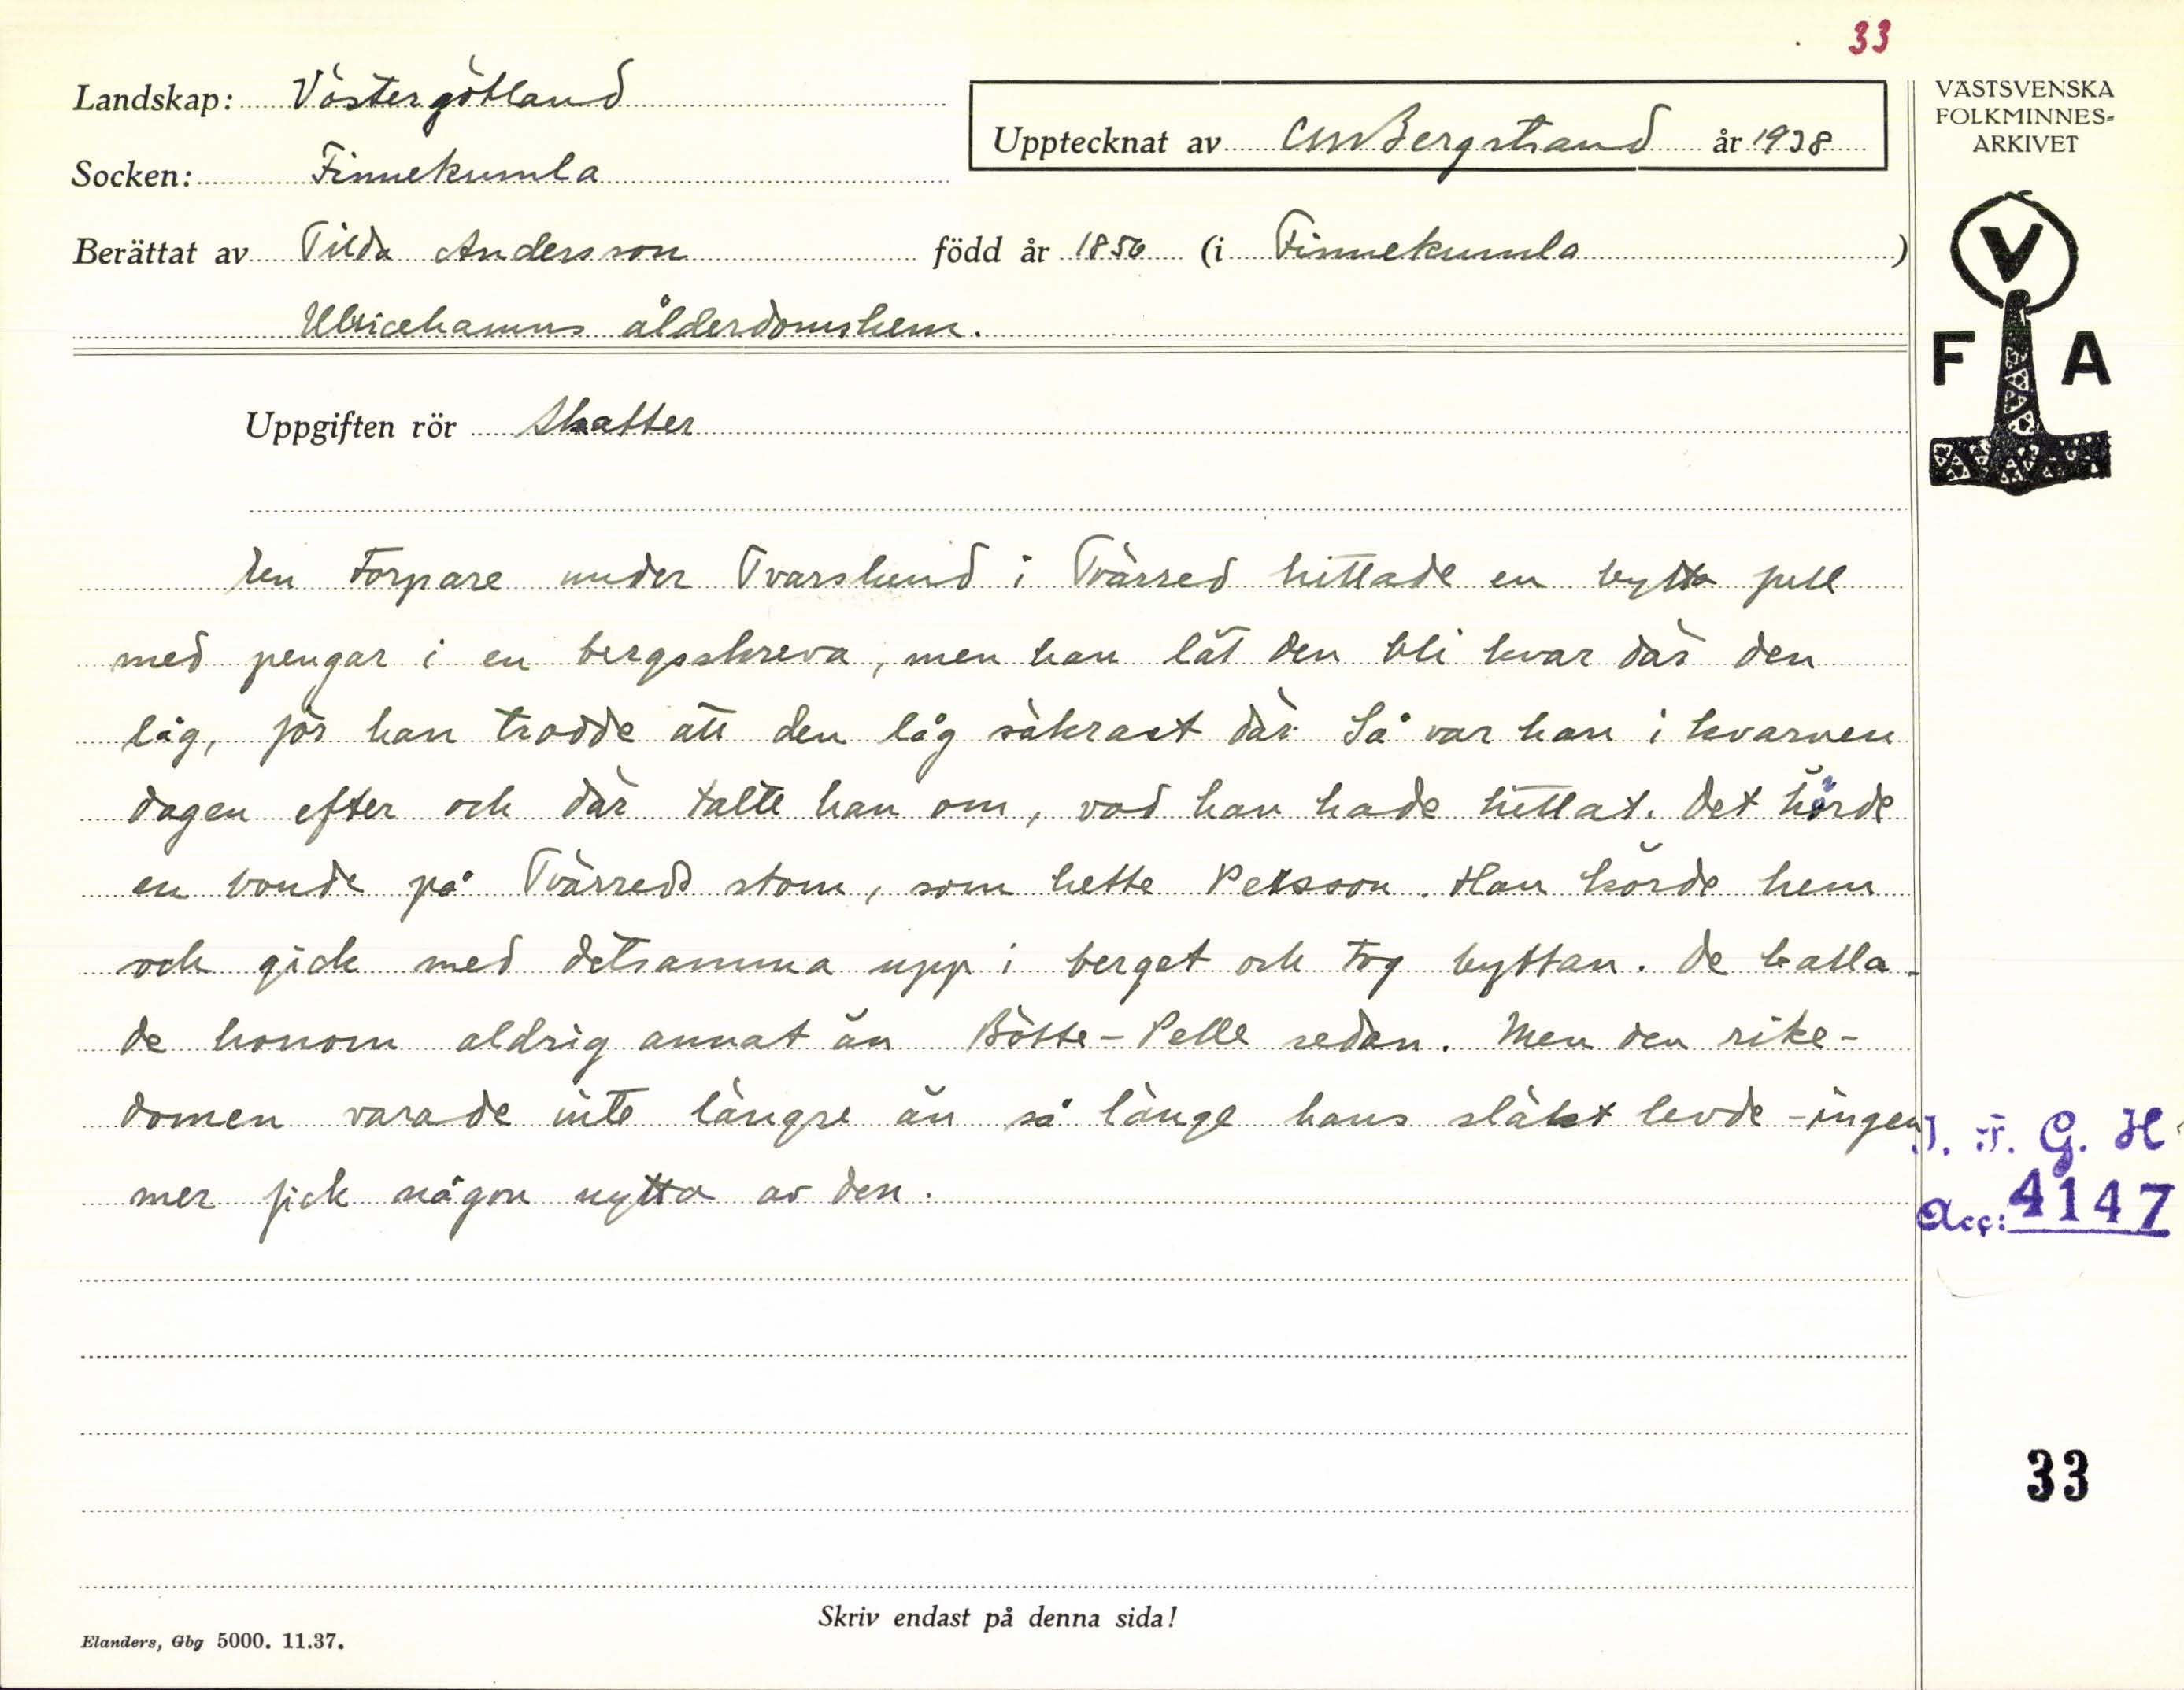 33
Landskap: Västergötland
Upptecknat av CM Bergstrand år 1938
VÄSTSVENSKA
FOLKMINNES-
ARKIVET
Socken: Finnekumla
Berättat av Tilda Andersson född år 1856 (i Finnekumla)
Ulricehamns ålderdomshem.
V
F A
Uppgiften rör Skatter
En torpare under Tvarslund i Tvärred hittade en bytta full
med pengar i en bergsskreva, men han lät den bli kvar där den
låg, för han trodde att den låg säkrast där. Så var han i kvarnen
dagen efter och där talte han om, vad han hade hittat. Det hörde
en bonde på Tvärreds stom, som hette Persson. Han körde hem
och gick med detsamma upp i berget och tog byttan. De kalla-
de honom aldrig annat än Bötte-Pelle sedan. Men den rike-
domen varade inte längre än så länge hans släkt levde - ingen
mer fick någon nytta av den.
I. F. G. H.
Acc: 4147
33
Skriv endast på denna sida!
Elanders, Gbg 5000. 11.37.